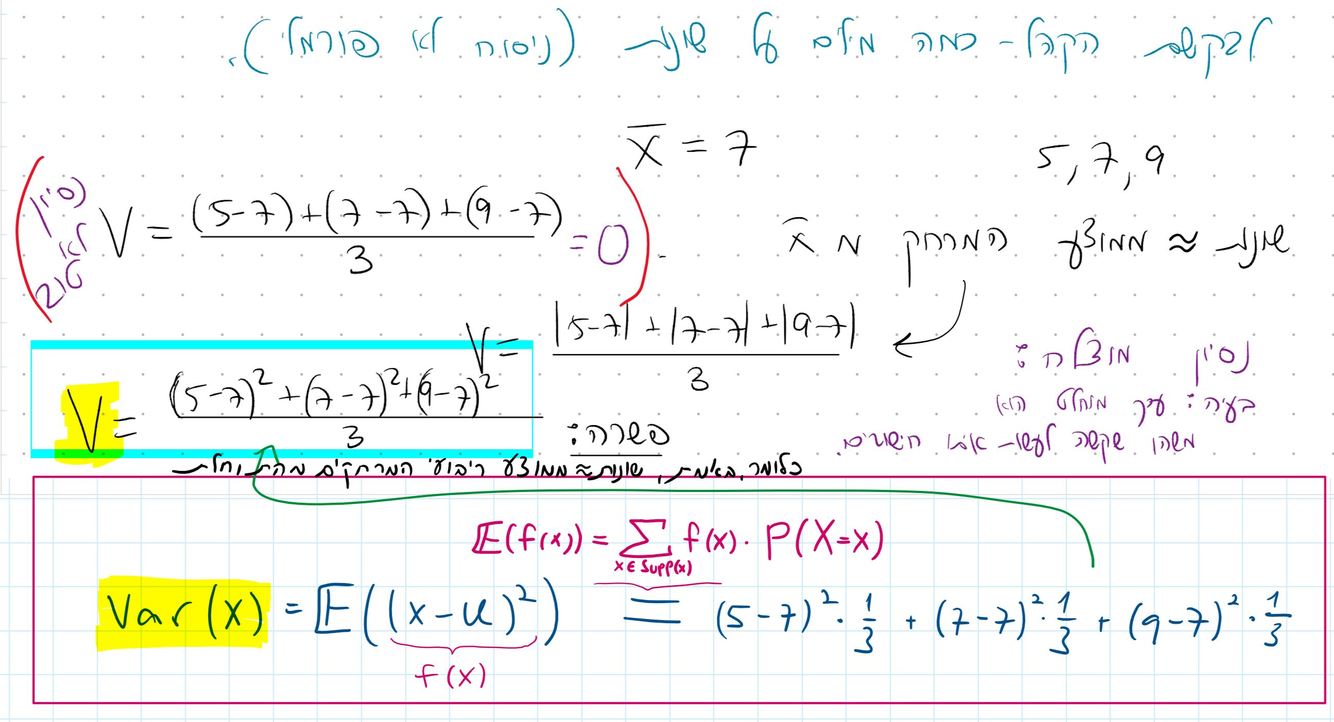 לבקשת הקהל - כמה מילים על שונות (ניסוח לא פורמלי).
5, 7, 9
X̄ = 7
שונות ≈ ממוצע המרחק מ x̄
(ניסיון לא טוב V = ((5-7)+(7-7)+(9-7))/3 = 0).
ניסיון מוצלח:
V = (|5-7| + |7-7| + |9-7|)/3
בעיה: ערך מוחלט הוא
משהו שקשה לעשות איתו חישובים.
פשרה:
V = ((5-7)² + (7-7)² + (9-7)²)/3
כלומר, באמת, שונות ≈ ממוצע ריבועי המרחקים מהתוחלת
E(f(x)) = Σ_{x∈Supp(x)} f(x) · P(X=x)
Var(x) = E((x-μ)²) = (5-7)² · 1/3 + (7-7)² · 1/3 + (9-7)² · 1/3
f(x)